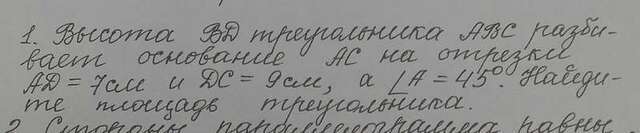 1. Высота BD треугольника ABC разби-
вает основание AC на отрезки
AD = 7см и DC = 9см, а ∠A = 45°. Найди-
те площадь треугольника.
2. Стороны параллелограмма равны